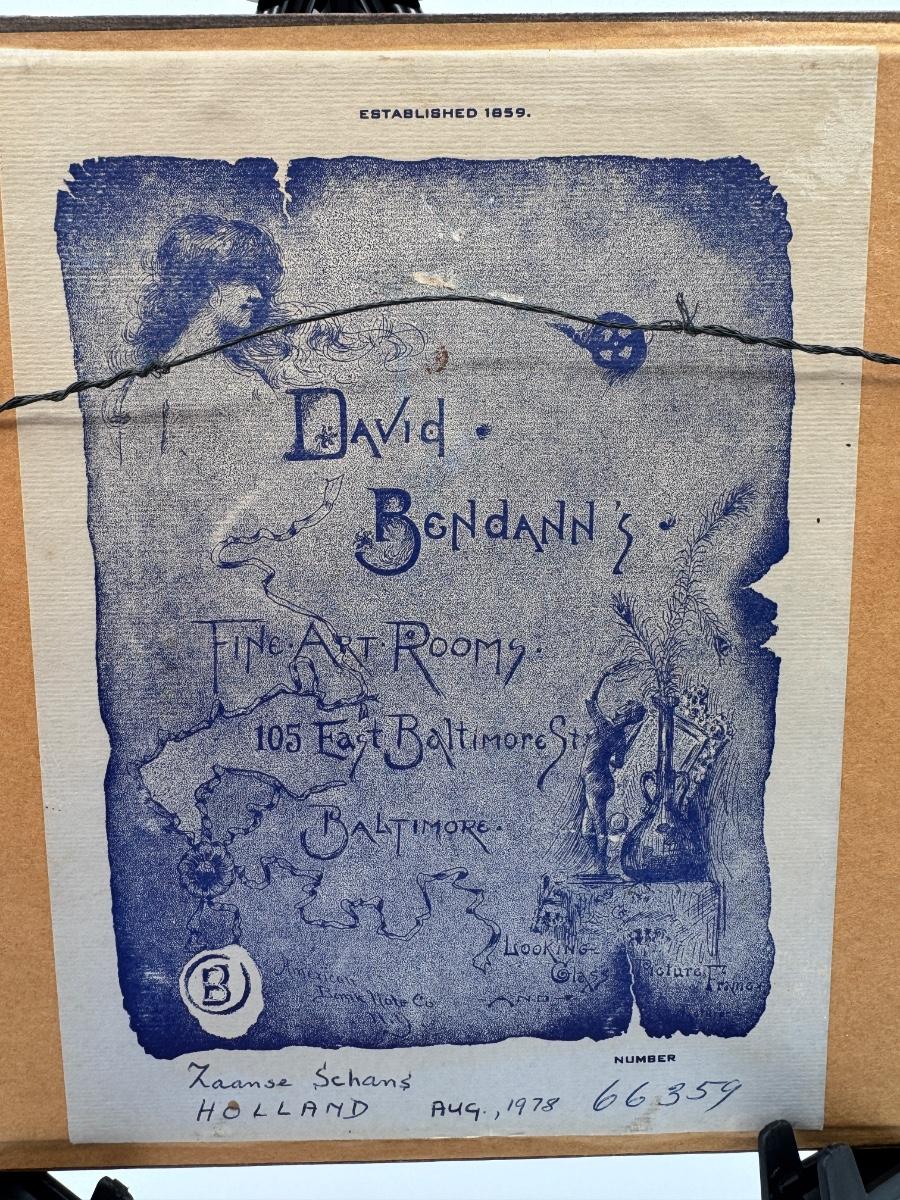 ESTABLISHED 1859.
DAVID
BENDANN'S
FINE·ART·ROOMS·
105 East Baltimore Str
BALTIMORE·
LOOKING-
Glass Picture Frames
AND
B
American
Bank Note Co
N.Y.
NUMBER
Zaanse Schans
HOLLAND AUG., 1978 66359